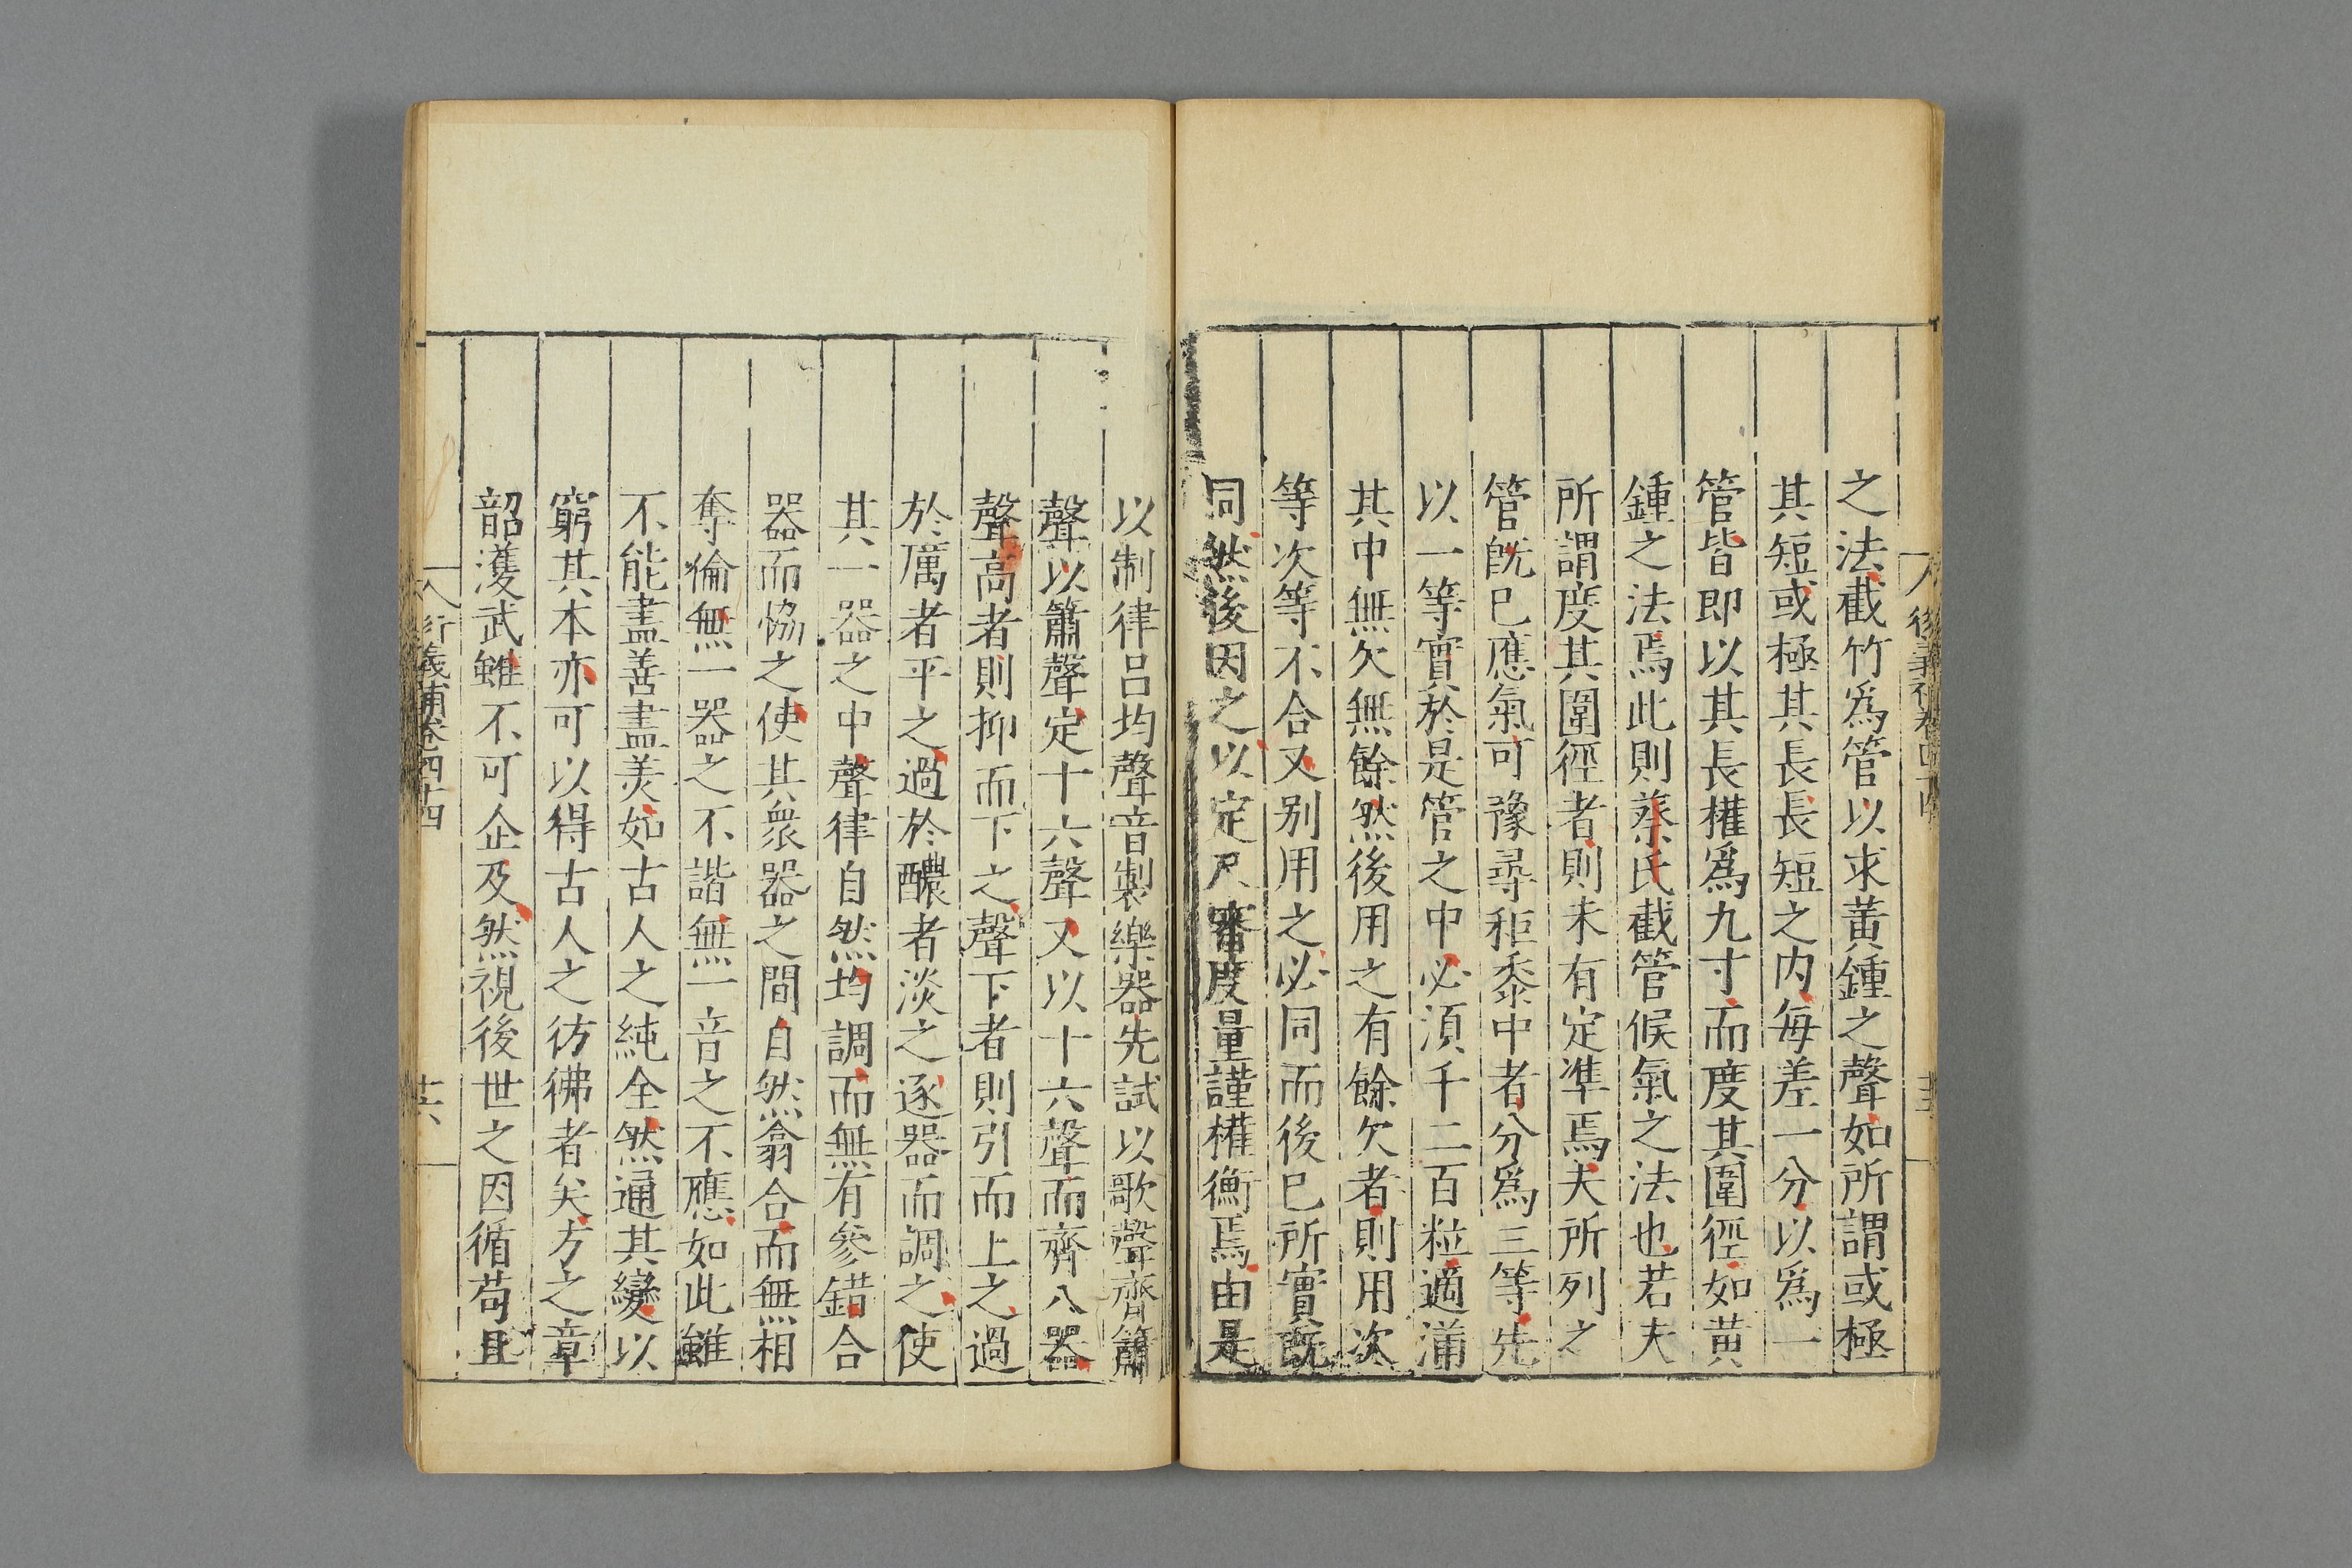 之法截竹爲管以求黃鍾之聲如所謂或極
其短或極其長長短之內每差一分以爲一
管皆即以其長權爲九寸而度其圍徑如黃
鍾之法焉此則蔡氏截管候氣之法也若夫
所謂度其圍徑者則未有定準焉夫所列之
管旣已應氣可豫尋秬黍中者分爲三等先
以一等實於是管之中必湏千二百粒適蒲
其中無欠無餘然後用之有餘欠者則用次
等次等不合又别用之必同而後已所實旣
同然後因之以定尺審度量謹權衡焉由是
以制律呂均聲音製樂器先試以歌聲齊簫
聲以簫聲定十六聲又以十六聲而齊八器
聲高者則抑而下之聲下者則引而上之過
於厲者平之過於醲者淡之逐器而調之使
其一器之中聲律自然均調而無有參錯合
器而恊之使其衆器之間自然翕合而無相
奪倫無一器之不諧無一音之不應如此雖
不能盡善盡美如古人之純全然通其變以
窮其本亦可以得古人之彷彿者矣方之章
韶濩武雖不可企及然視後世之因循苟且
衍義補卷四十四
十六